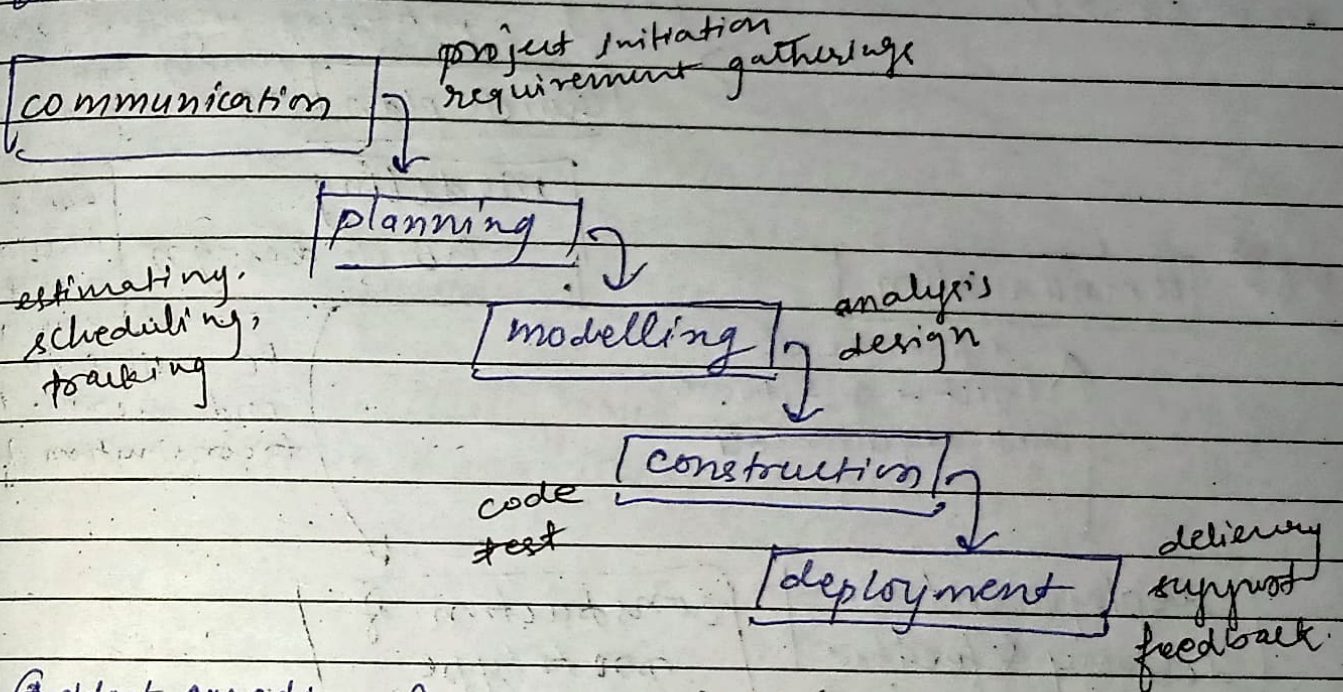 project initiation
requirement gatherings
communication
planning
estimating.
scheduling,
tracking
modelling
analysis
design
construction
code
test
deployment
delievery
support
feedback.